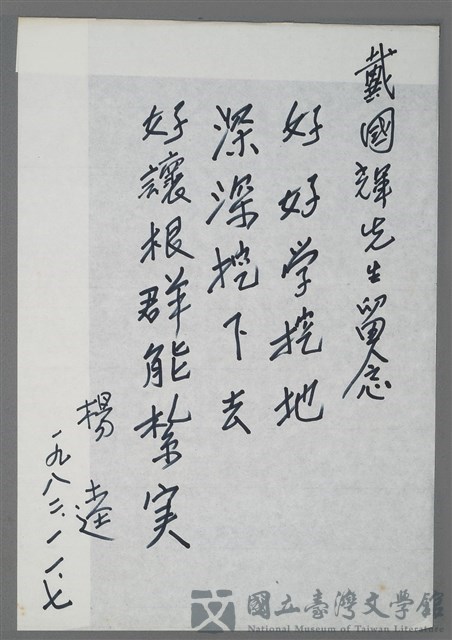 戴國煇先生留念
好好学挖地
深深挖下去
好讓根群能紮实
楊逵
一九八二.一一.七
國立臺灣文學館
National Museum of Taiwan Literature